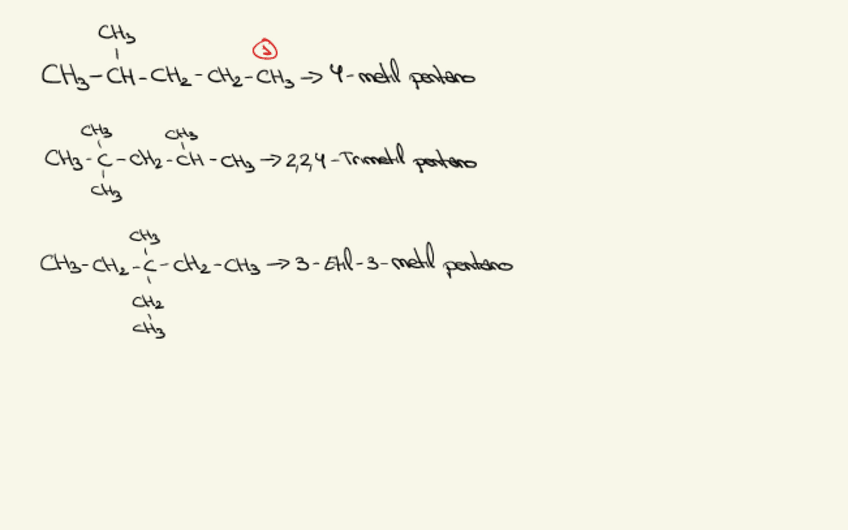 CH₃
①
CH₃-CH-CH₂-CH₂-CH₃ → 4-metil pentano
CH₃ CH₃
CH₃-C-CH₂-CH-CH₃ → 2,2,4-Trimetil pentano
CH₃
CH₃
CH₃-CH₂-C-CH₂-CH₃ → 3-Etil-3-metil pentano
CH₂
CH₃